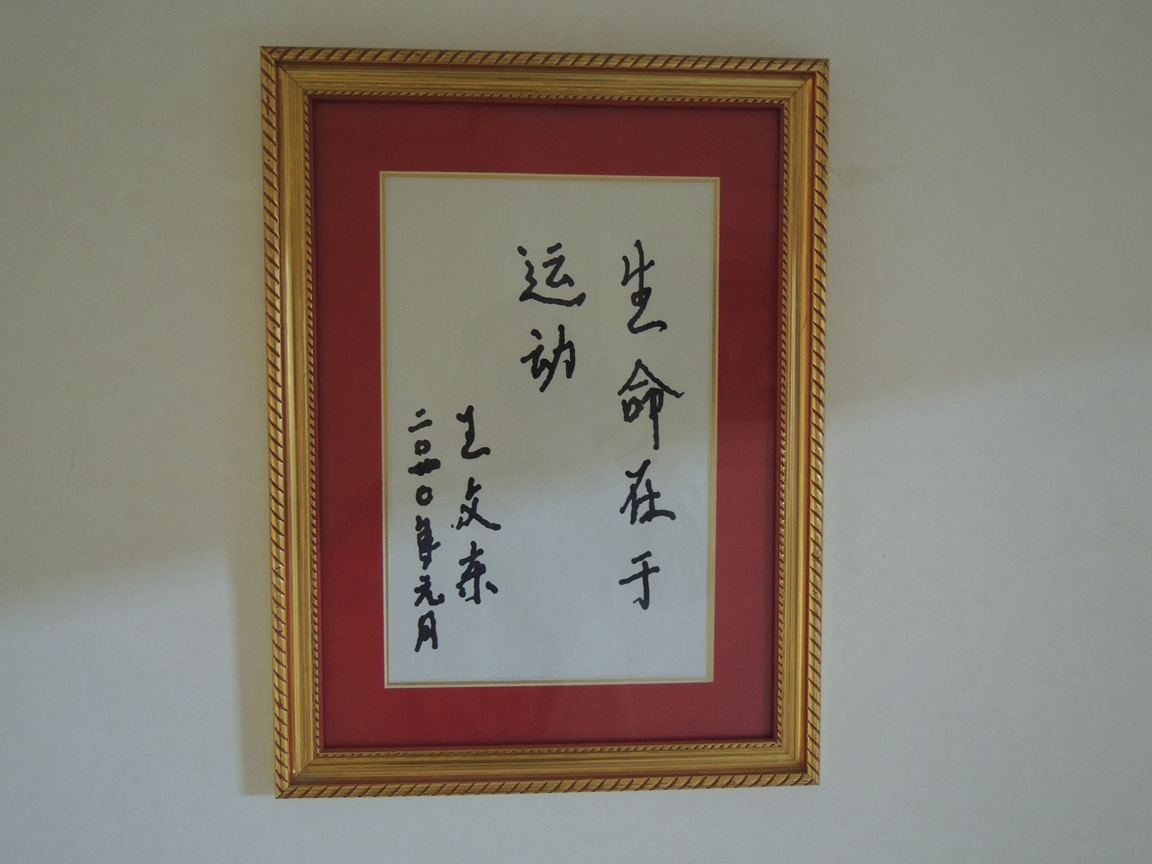 生命在于
运动
王文东
二〇一〇年元月